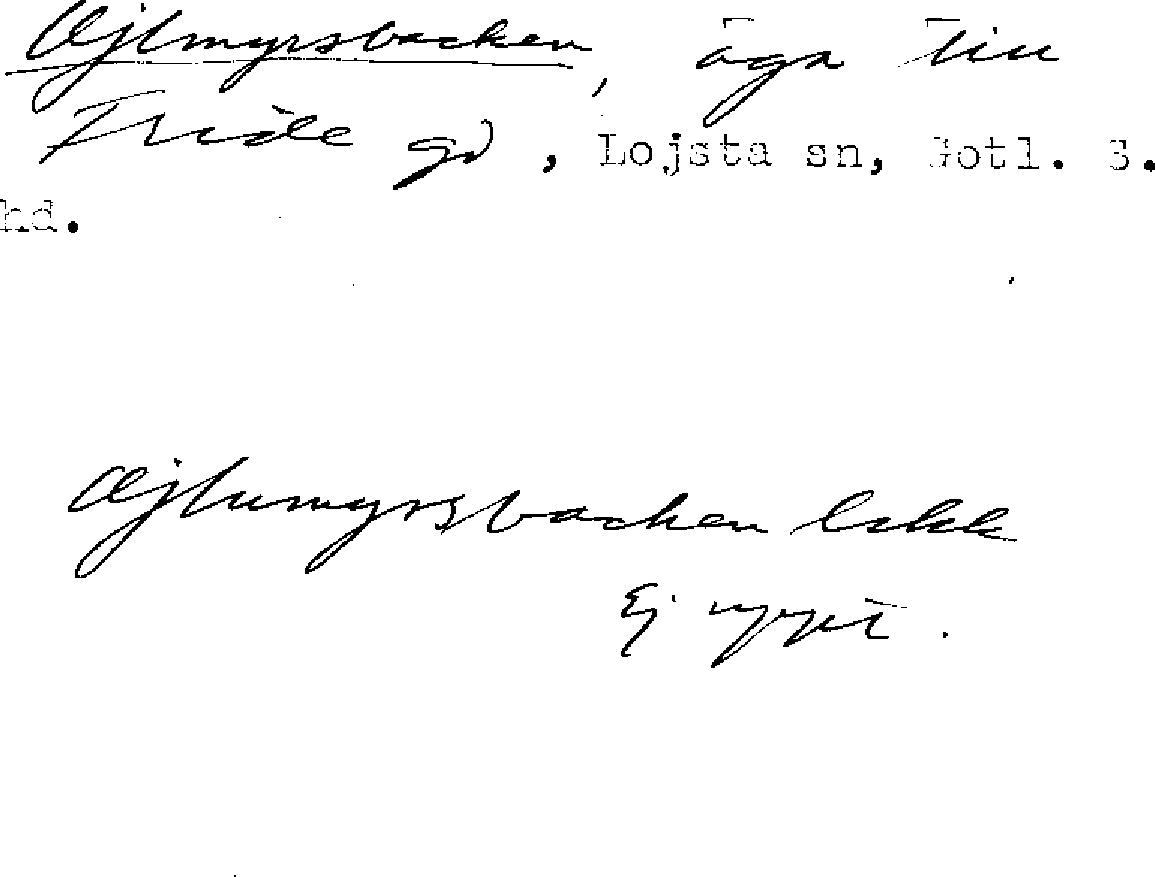 Ajlmyrsbacken, äga till
Fride gd, Lojsta sn, Gotl. S.
hd.
Ajlumyrsbacken
Ej uppt.